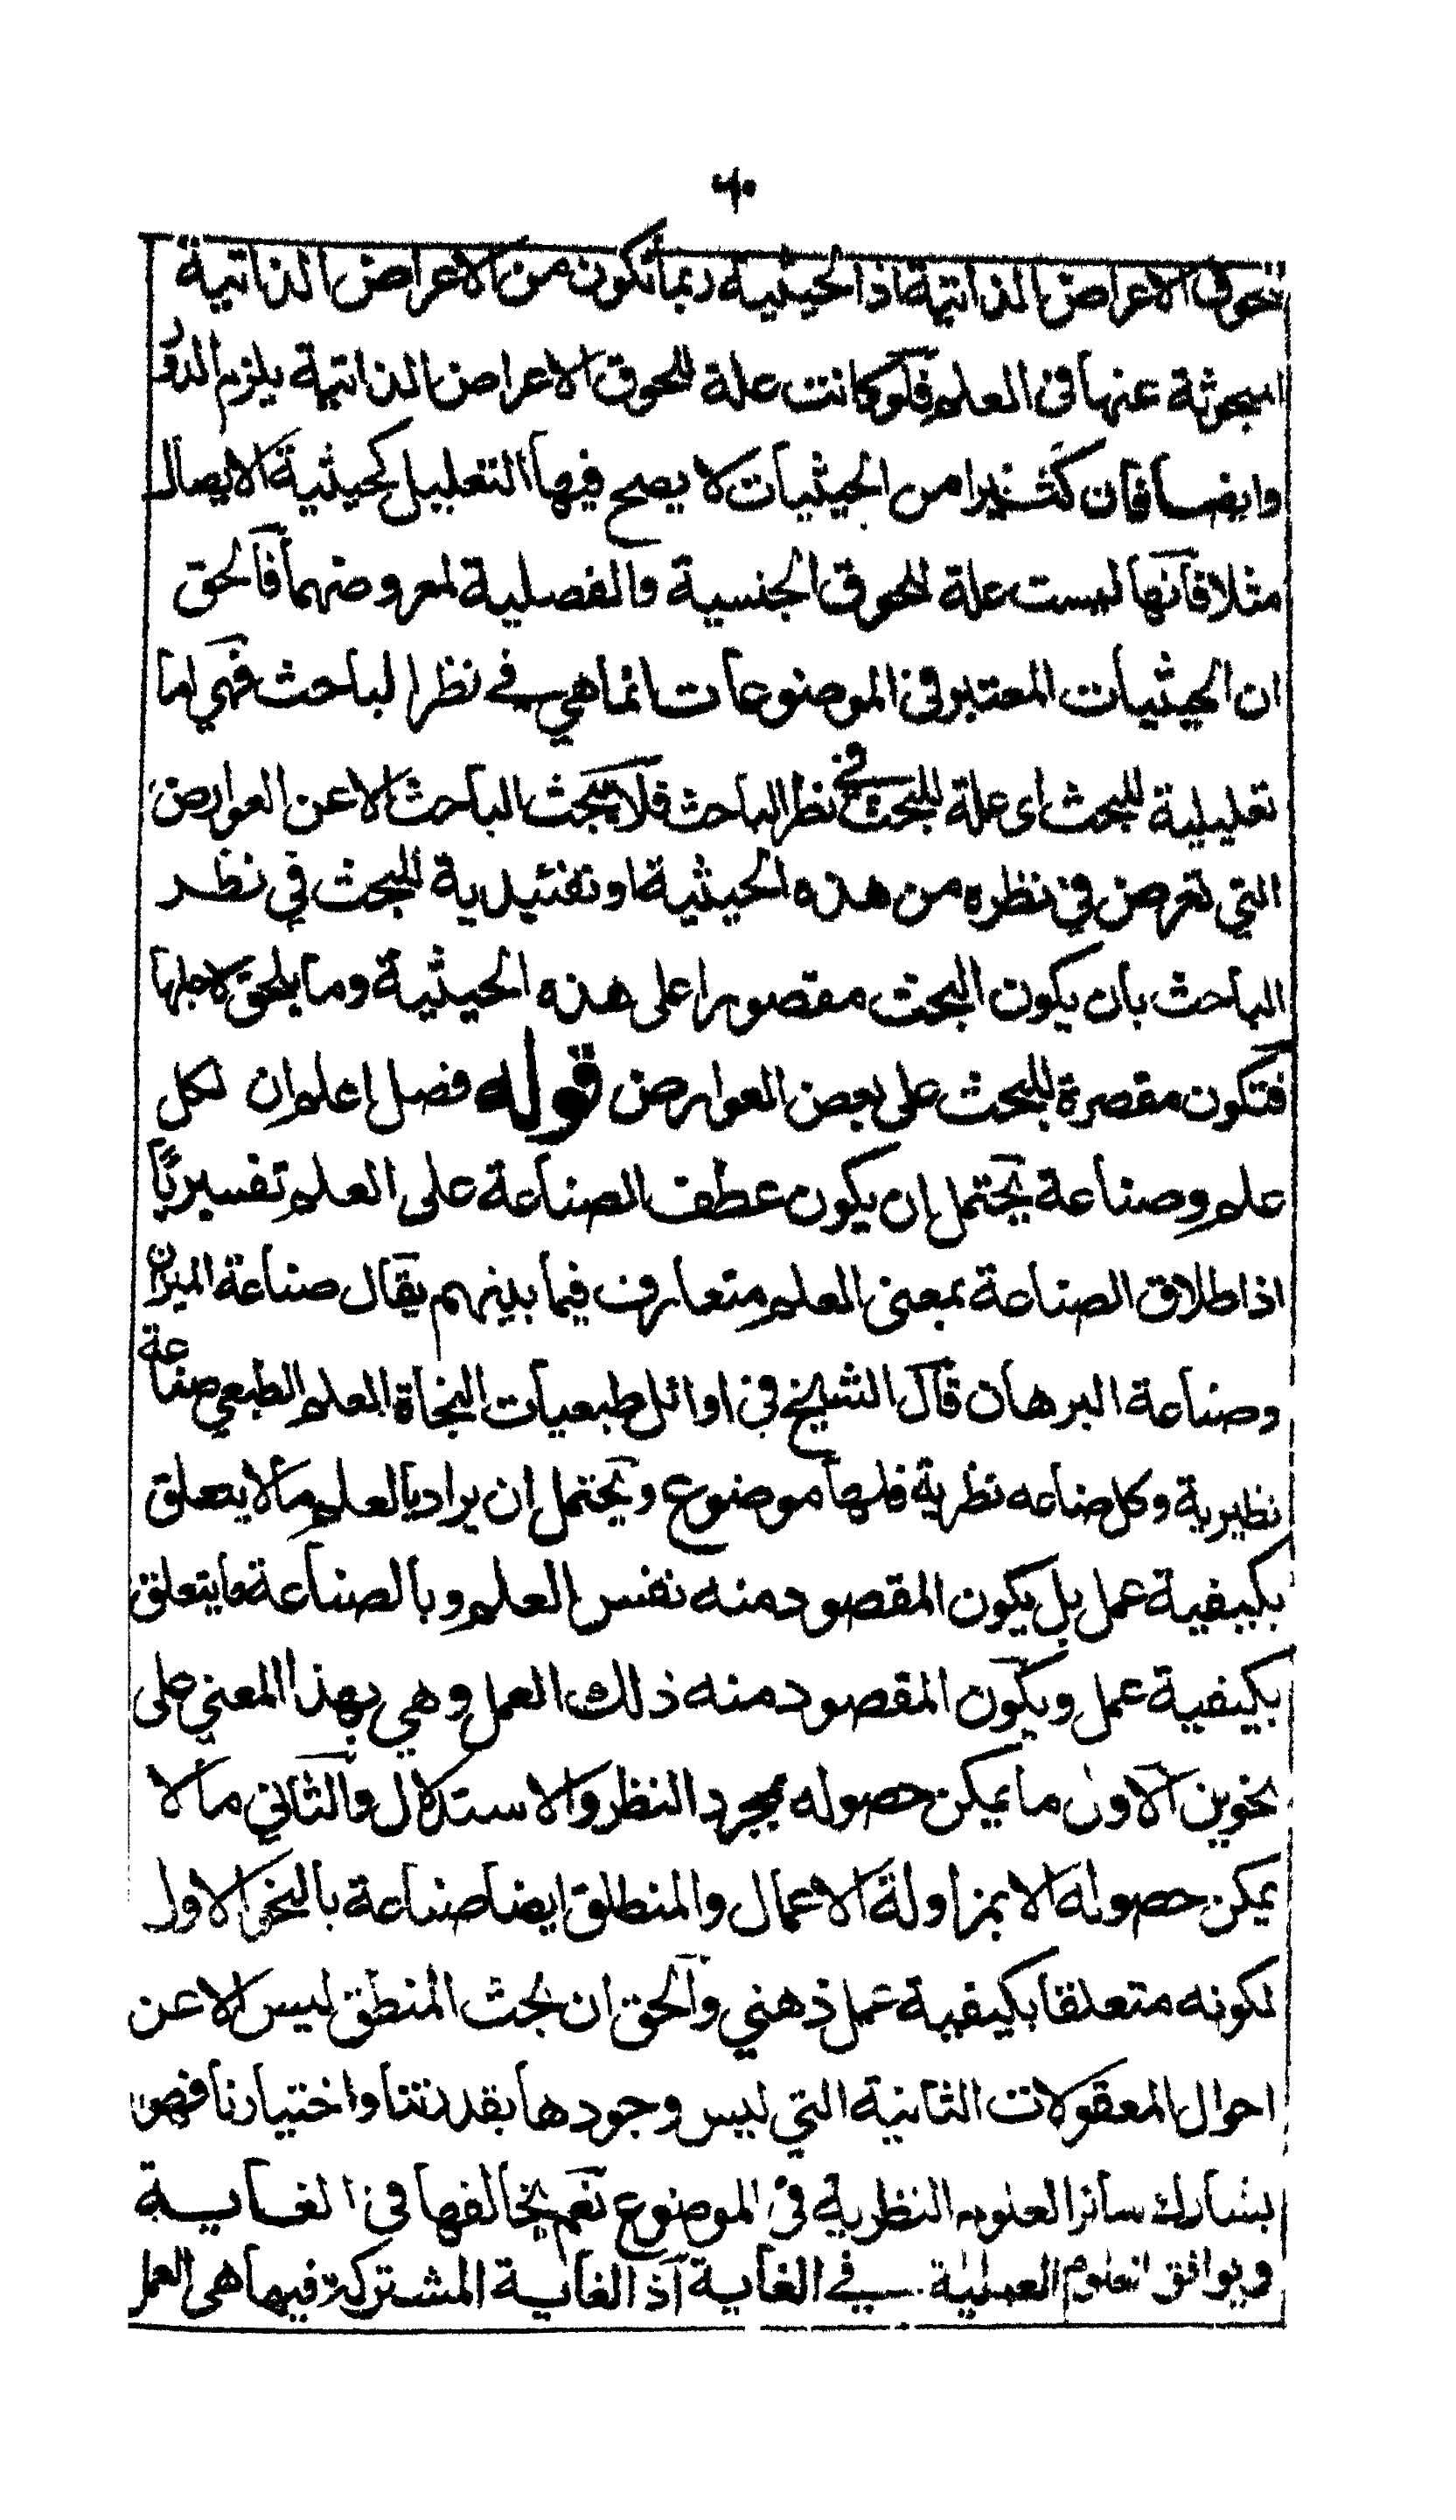 ۴۰
لحوق الاعراض الذاتية اذا الحيثية ربما تكون من الاعراض الذاتية
المبحوثة عنها في العلم فلو كانت علة للحوق الاعراض الذاتية يلزم الدور
وايضا فان كثيرا من الحيثيات لا يصح فيها التعليل كحيثية الايصال
مثلا فانها ليست علة للحوق الجنسية والفصلية لمعروضهما فالحق
ان الحيثيات المعتبر في الموضوعات انما هي في نظر الباحث فهي اما
تعليلية للبحث اى علة للبحث في نظر الباحث فلا يبحث الباحث الا عن العوارض
التي تعرض في نظره من هذه الحيثية او تقئيدية للبحث في نظر
الباحث بان يكون البحث مقصورا على هذه الحيثية وما يلحق لاجلها
فتكون مقصرة للبحث على بعض العوارض قوله فصل اعلم ان لكل
علم وصناعة يحتمل ان يكون عطف الصناعة على العلم تفسيريًا
اذ اطلاق الصناعة بمعنى العلم متعارف فيما بينهم يقال صناعة الميزان
وصناعة البرهان قال الشيخ في اوائل طبعيات النجاة العلم الطبعي صناعة
نظيرية وكل صناعه نظرية فلها موضوع ويحتمل ان يراد بالعلم ما لا يتعلق
بكيفية عمل بل يكون المقصود منه نفس العلم وبالصناعة ما يتعلق
بكيفية عمل ويكون المقصود منه ذلك العمل وهي بهذا المعني على
نحوين الاول ما يمكن حصوله بمجرد النظر والاستدلال والثاني ما لا
يمكن حصوله الا بمزاولة الاعمال والمنطلق ايضا صناعة بالنحو الاول
لكونه متعلقا بكيفية عمل ذهني والحق ان بحث المنطق ليس الا عن
احوال المعقولات الثانية التي ليس وجودها بقدرتنا واختيارنا فهو
يشارك سائر العلوم النظرية في الموضوع نعم يخالفها في الغاية
ويوافق العلوم العملية في الغاية اذ الغاية المشتركة فيها هى العمل